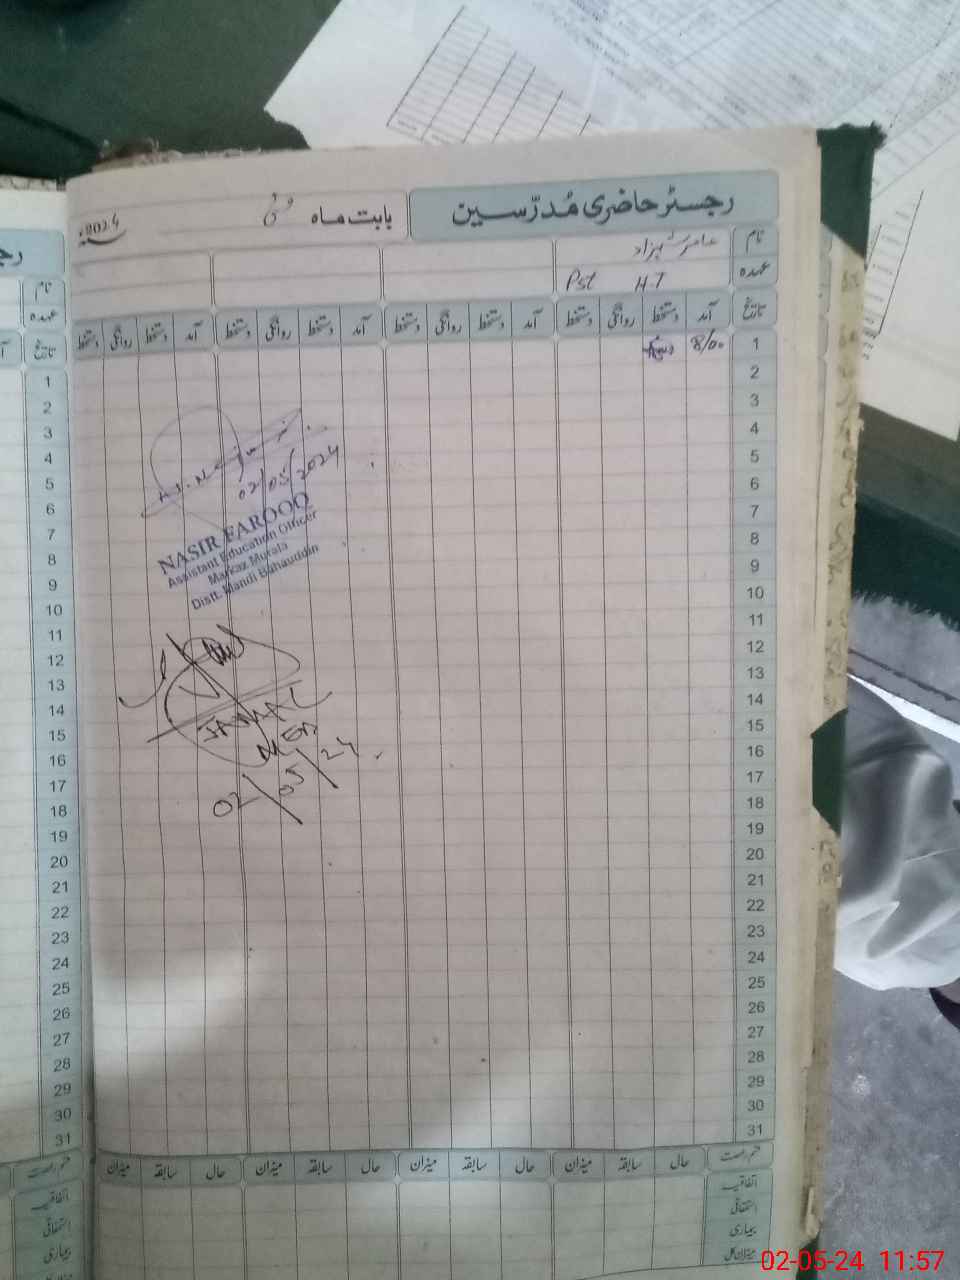 رجسٹر حاضری مُدرّسین
بابت ماہ مئی 2024ء
نام عامر شہزاد
عہدہ Pst H.T
تاریخ آمد دستخط روانگی دستخط آمد دستخط روانگی دستخط آمد دستخط روانگی دستخط آمد دستخط روانگی دستخط
1 8/00
2
3
4
5
6
7
8
9
10
11
12
13
14
15
16
17
18
19
20
21
22
23
24
25
26
27
28
29
30
31
02/05/2024
NASIR FAROOQ
Assistant Education Officer
Markaz Murala
Distt. Mandi Bahauddin
02/05/24
حال سابقہ میزان حال سابقہ میزان حال سابقہ میزان حال سابقہ میزان
اتفاقیہ
استحقاقی
بیماری
میزان کل
نام
عہدہ
تاریخ
1
2
3
4
5
6
7
8
9
10
11
12
13
14
15
16
17
18
19
20
21
22
23
24
25
26
27
28
29
30
31
اتفاقیہ
استحقاقی
بیماری
02-05-24 11:57